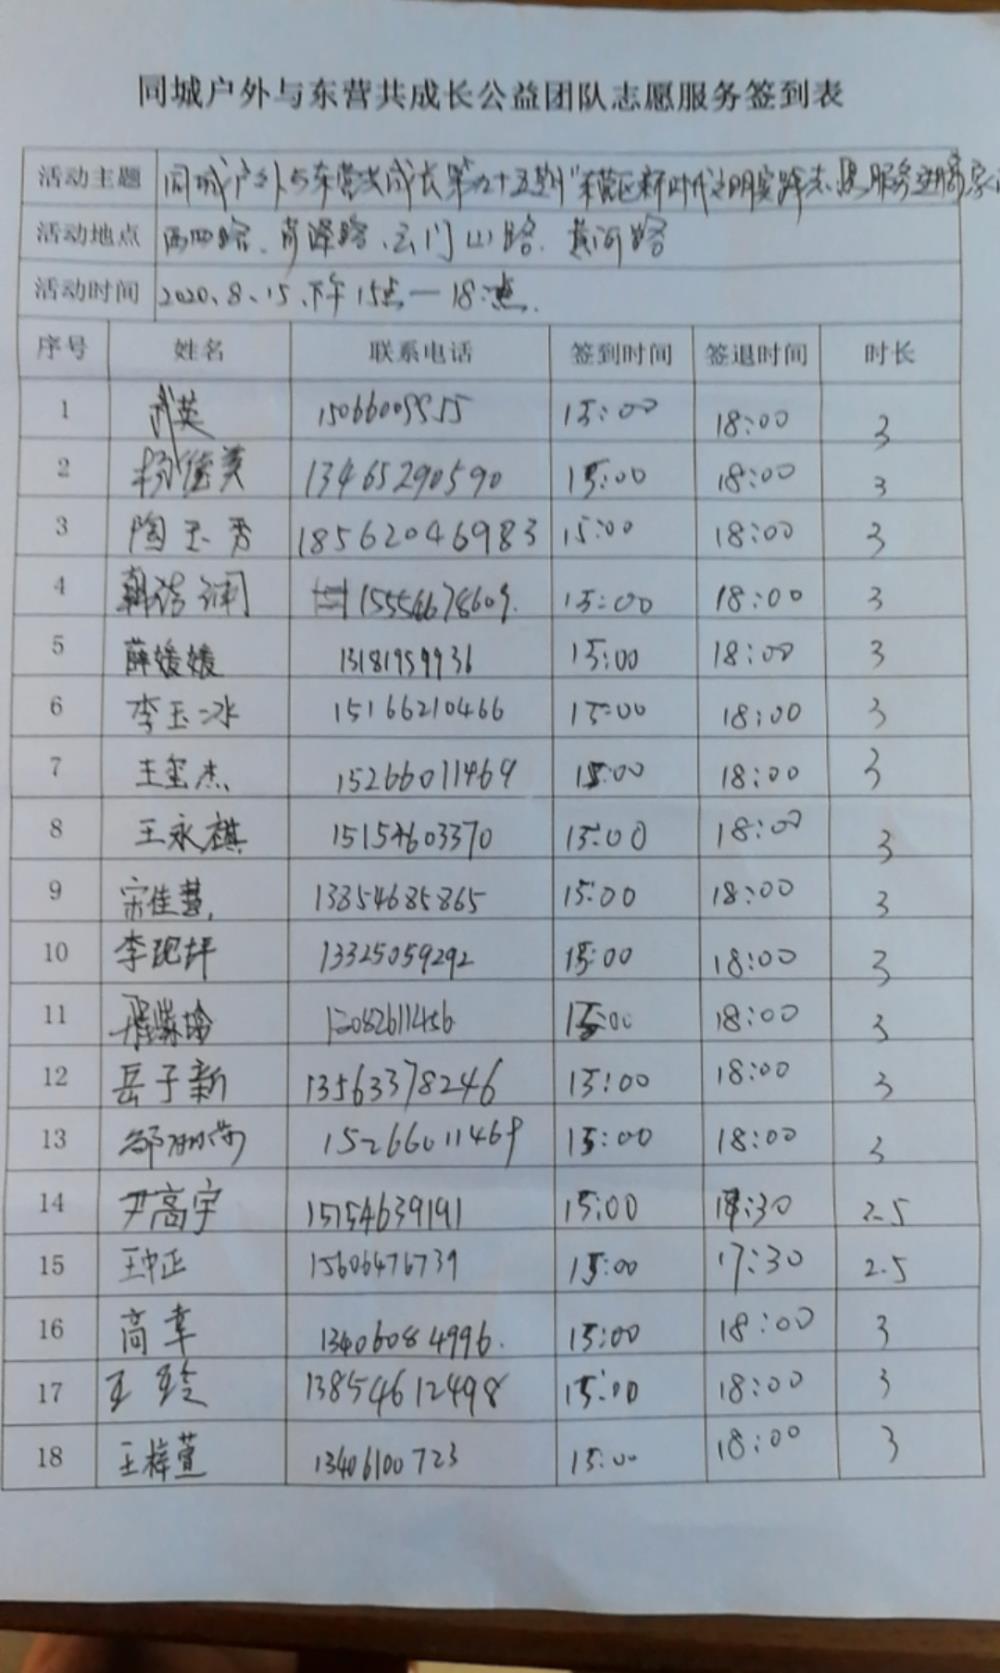 同城户外与东营共成长公益团队志愿服务签到表
活动主题 同城户外与东营共成长第九十五期"东营区新时代文明实践志愿服务进商家
活动地点 西四路、菏泽路、云门山路、黄河路
活动时间 2020、8、15、下午15点—18点.
序号 姓名 联系电话 签到时间 签退时间 时长
1 武英 15066009555 15:00 18:00 3
2 杨俊美 13465290590 15:00 18:00 3
3 陶玉秀 18562046983 15:00 18:00 3
4 15554678609. 15:00 18:00 3
5 薛媛媛 13181959936 15:00 18:00 3
6 李玉冰 15166210466 15:00 18:00 3
7 王玺杰 15266011469 15:00 18:00 3
8 王永祺 15154603370 15:00 18:00 3
9 宋佳慧 13854685865 15:00 18:00 3
10 李现坪 13325059292 15:00 18:00 3
11 15:00 18:00 3
12 岳子新 13563378246 15:00 18:00 3
13 15266011469 15:00 18:00 3
14 尹高宇 15154639191 15:00 17:30 2.5
15 王中正 15606476739 15:00 17:30 2.5
16 高幸 13406084996. 15:00 18:00 3
17 王玲 13854612498 15:00 18:00 3
18 王梓萱 13406100723 15:00 18:00 3